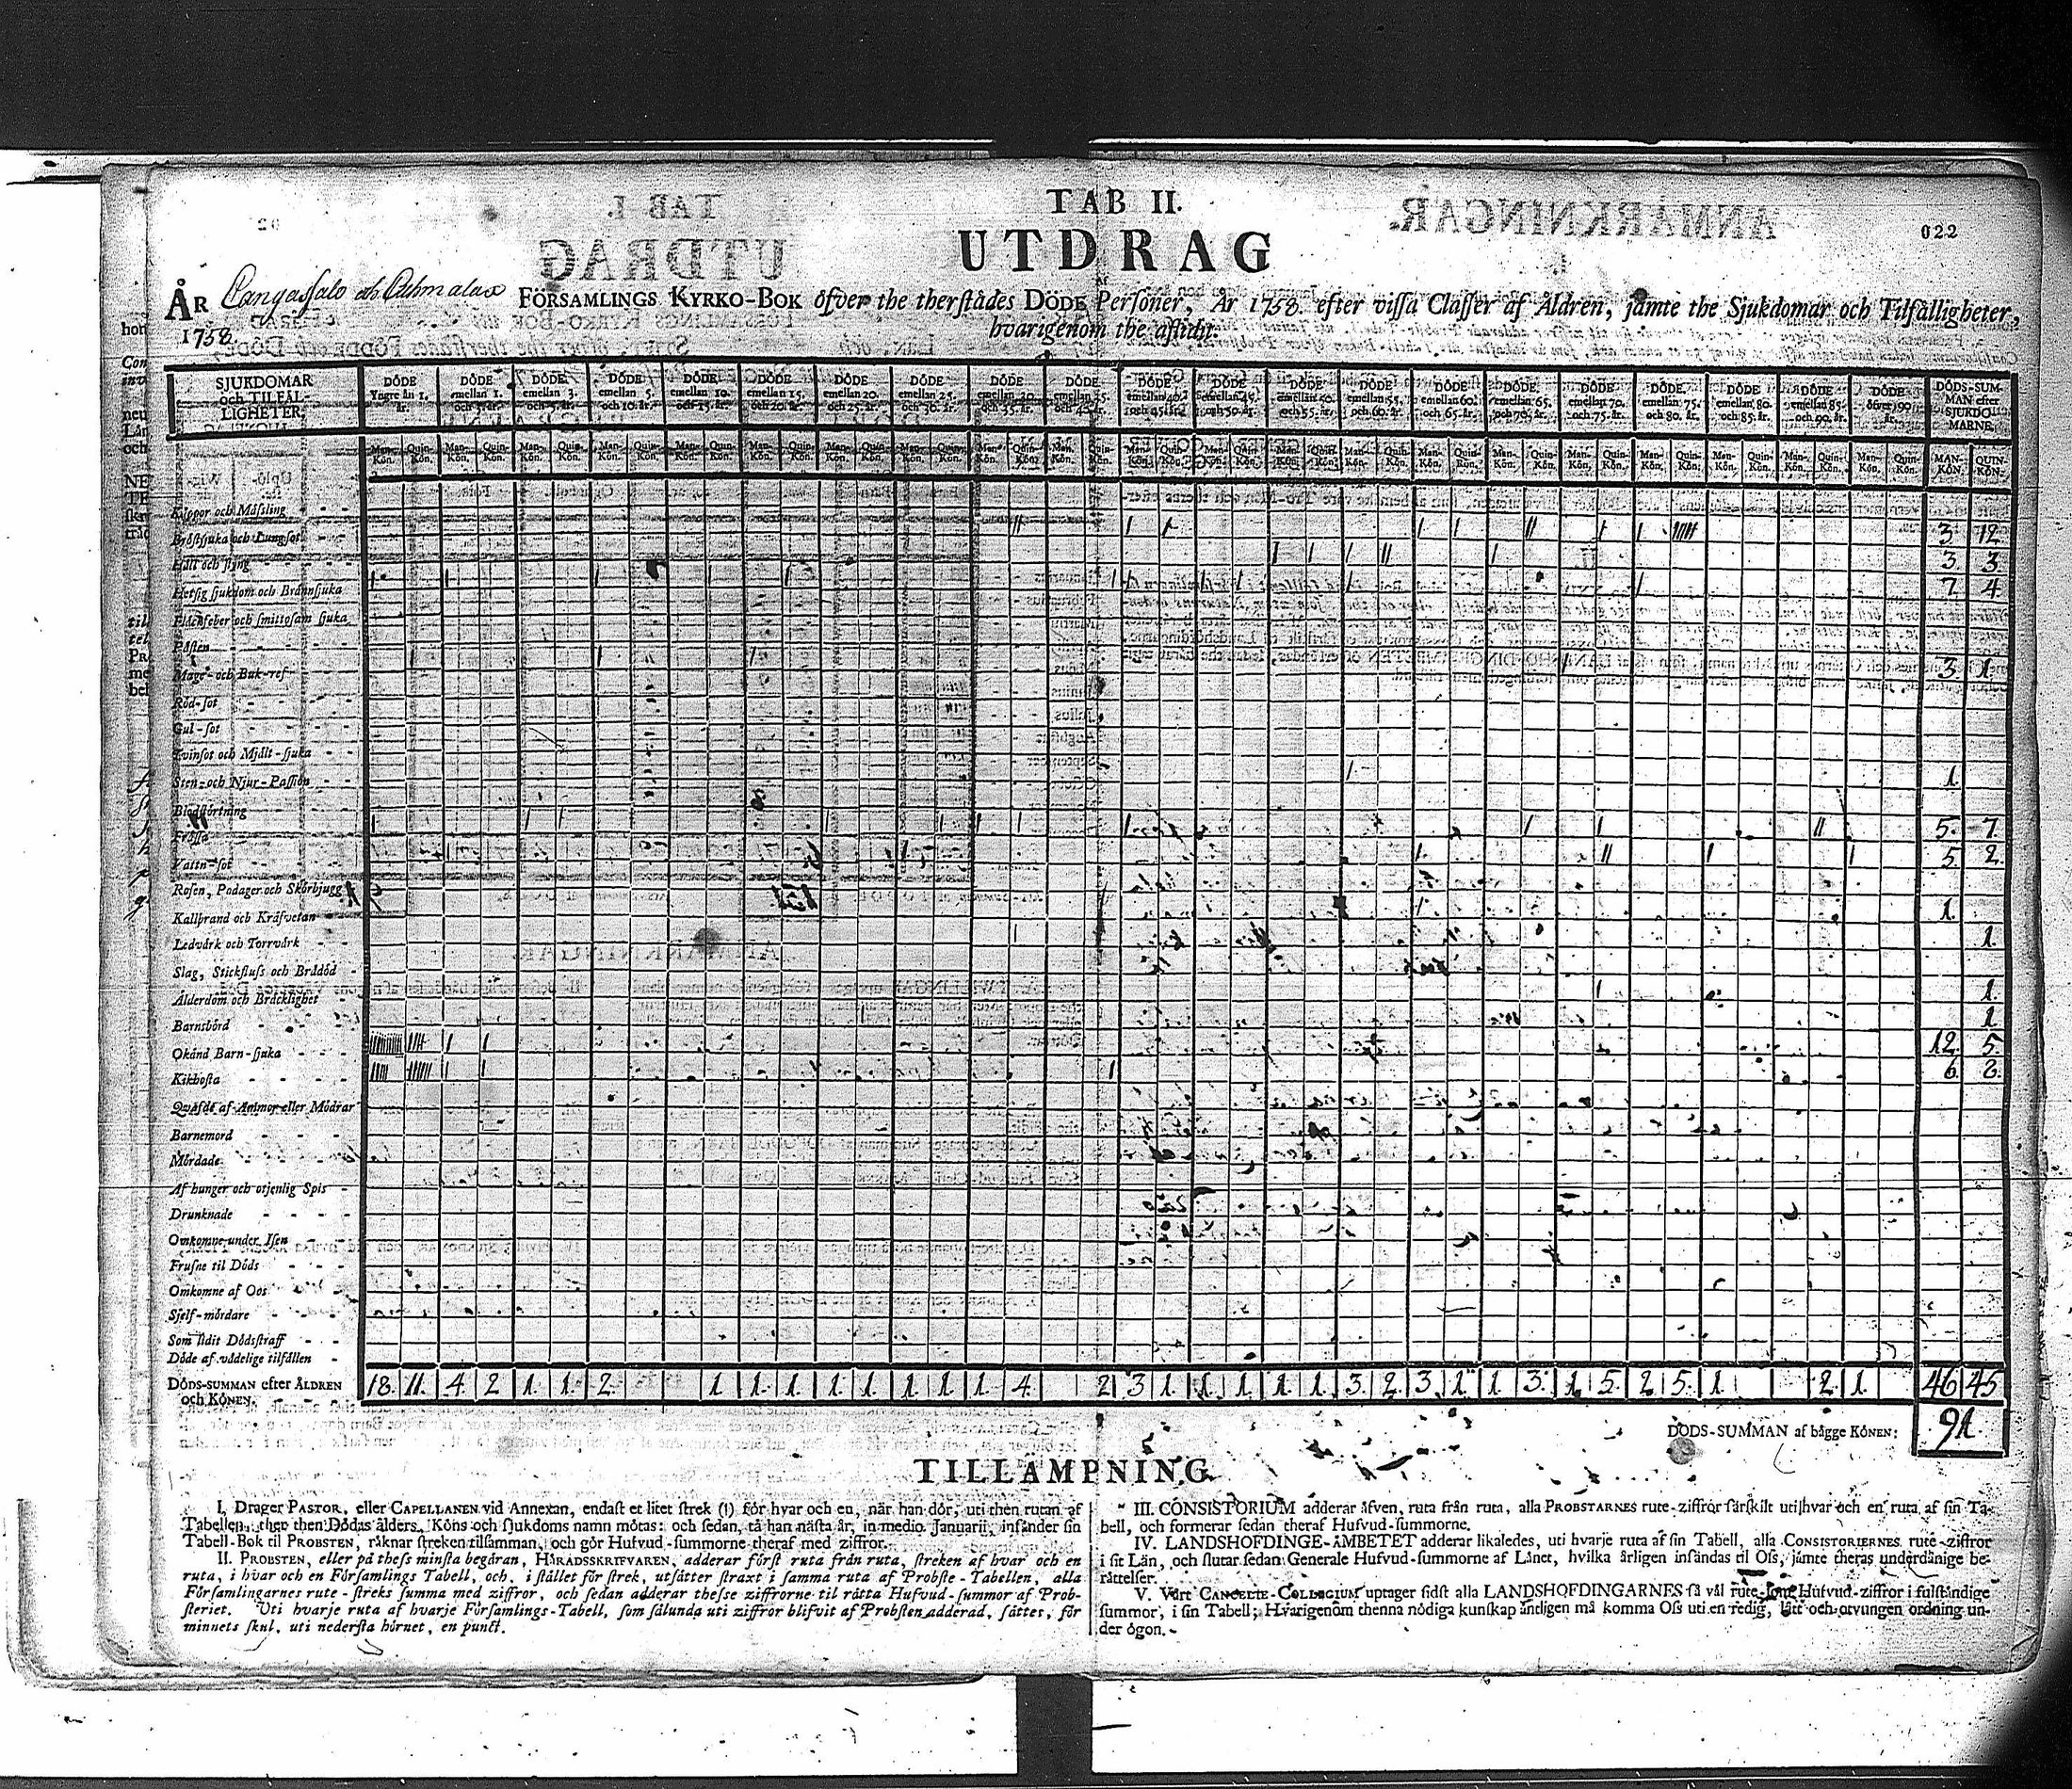 TAB II.
022
UTDRAG
ÅR Cangassalo och Cuhmalax FÖRSAMLINGS KYRKO-BOK öfver the therstädes DÖDE Personer, År 1758. efter vissa Classer af Åldren, jämte the Sjukdomar och Tilfälligheter,
1758. hvarigenom the aflidit.
SJUKDOMAR och TILFÄLLIGHETER.
DÖDE Yngre än 1. år.
DÖDE emellan 1. och 3. år.
DÖDE emellan 3. och 5. år.
DÖDE emellan 5. och 10. år.
DÖDE emellan 10. och 15. år.
DÖDE emellan 15. och 20. år.
DÖDE emellan 20. och 25. år.
DÖDE emellan 25. och 30. år.
DÖDE emellan 30. och 35. år.
DÖDE emellan 35. och 40. år.
DÖDE emellan 40. och 45. år.
DÖDE emellan 45. och 50. år.
DÖDE emellan 50. och 55. år.
DÖDE emellan 55. och 60. år.
DÖDE emellan 60. och 65. år.
DÖDE emellan 65. och 70. år.
DÖDE emellan 70. och 75. år.
DÖDE emellan 75. och 80. år.
DÖDE emellan 80. och 85. år.
DÖDE emellan 85. och 90. år.
DÖDE öfver 90 år.
DÖDS-SUMMAN efter SJUKDOMARNE.
MAN-KÖN. QUIN-KÖN.
Koppor och Mässling
Bröstsjuka och Lungsot 3 12
Håll och styng 3 3.
Hetsig sjukdom och Brännsjuka 7. 4.
Fläckfeber och smittosam sjuka
Påsten
Mage- och Buk-ref 3. 1.
Röd-sot
Gul-sot
Tvinsot och Mjält-sjuka
Sten- och Njur-Passion 1.
Blodstörtning
Frossa 5. 7.
Vattn-sot 5. 2.
Rosen, Podager och Skörbjugg
Kallbrand och Kräfvetan 1.
Ledvärk och Torrvärk 1.
Slag, Stickfluss och Brådöd
Ålderdom och Bräcklighet 1.
Barnsbörd 1
Okänd Barn-sjuka 12. 5.
Kikhosta 6. 8.
Qväfde af Ammor eller Mödrar
Barnemord
Mördade
Af hunger och otjenlig Spis
Drunknade
Omkomne under Isen
Frusne til Döds
Omkomne af Oos
Sjelf-mördare
Som lidit Dödsstraff
Döde af vådelige tilfällen
DÖDS-SUMMAN efter ÅLDREN och KÖNEN. 18. 11. 4. 2 1. 1. 2. 1 1. 1. 1. 1. 1. 1. 1. 4. 2 3 1. 1. 1. 1. 1. 3. 2. 3. 1. 1 3. 1. 5. 2. 5. 1. 2. 1. 46 45
DÖDS-SUMMAN af bägge KÖNEN: 91.
TILLÄMPNING.
I. Drager PASTOR, eller CAPELLANEN vid Annexan, endast et litet strek (I) för hvar och en, när han dör, uti then rutan af
Tabellen, ther then Dödas ålders, Köns och sjukdoms namn mötas: och sedan, tå han nästa år, in medio Januarii, insänder sin
Tabell-Bok til PROBSTEN, räknar streken tilsamman, och gör Hufvud-summorne theraf med ziffror.
II. PROBSTEN, eller på thess minsta begäran, HÄRADSSKRIFVAREN, adderar först ruta från ruta, streken af hvar och en
ruta, i hvar och en Församlings Tabell, och, i stället för strek, utsätter straxt i samma ruta af Probste-Tabellen, alla
Församlingarnes rute-streks summa med ziffror, och sedan adderar thesse ziffrorne til rätta Hufvud-summor af Probsteriet. Uti hvarje ruta af hvarje Församlings-Tabell, som sålunda uti ziffror blifvit af Probsten adderad, sätter, för
minnets skul, uti nedersta hörnet, en punct.
III. CONSISTORIUM adderar äfven, ruta från ruta, alla PROBSTARNES rute-ziffror särskilt uti hvar och en ruta af sin Tabell, och formerar sedan theraf Hufvud-summorne.
IV. LANDSHÖFDINGE-ÄMBETET adderar likaledes, uti hvarje ruta af sin Tabell, alla CONSISTORIERNES rute-ziffror
i sit Län, och slutar sedan Generale Hufvud-summorne af Länet, hvilka årligen insändas til Oss, jämte theras underdånige berättelser.
V. Vårt CANCELLIE-COLLEGIUM uptager sidst alla LANDSHÖFDINGARNES så väl rute- som Hufvud-ziffror i fulständige
summor, i sin Tabell; Hvarigenom thenna nödiga kunskap äntligen må komma Oss uti en redig, lätt och otvungen ordning under ögon.